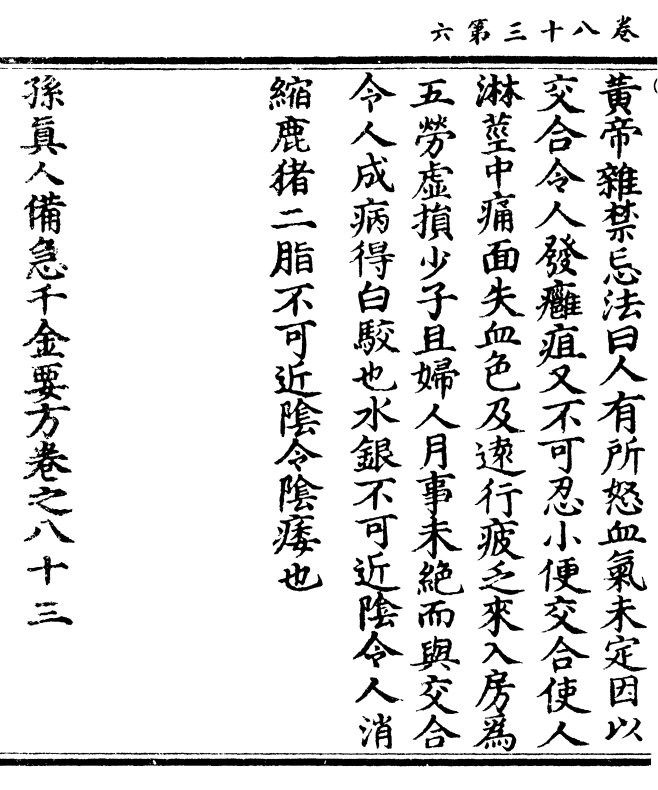 卷八十三第六
黃帝雜禁忌法曰人有所怒血氣未定因以
交合令人發癰疽又不可忍小便交合使人
淋莖中痛面失血色及遠行疲乏來入房爲
五勞虛損少子且婦人月事未絕而與交合
令人成病得白駮也水銀不可近陰令人消
縮鹿猪二脂不可近陰令陰痿也
孫真人備急千金要方卷之八十三